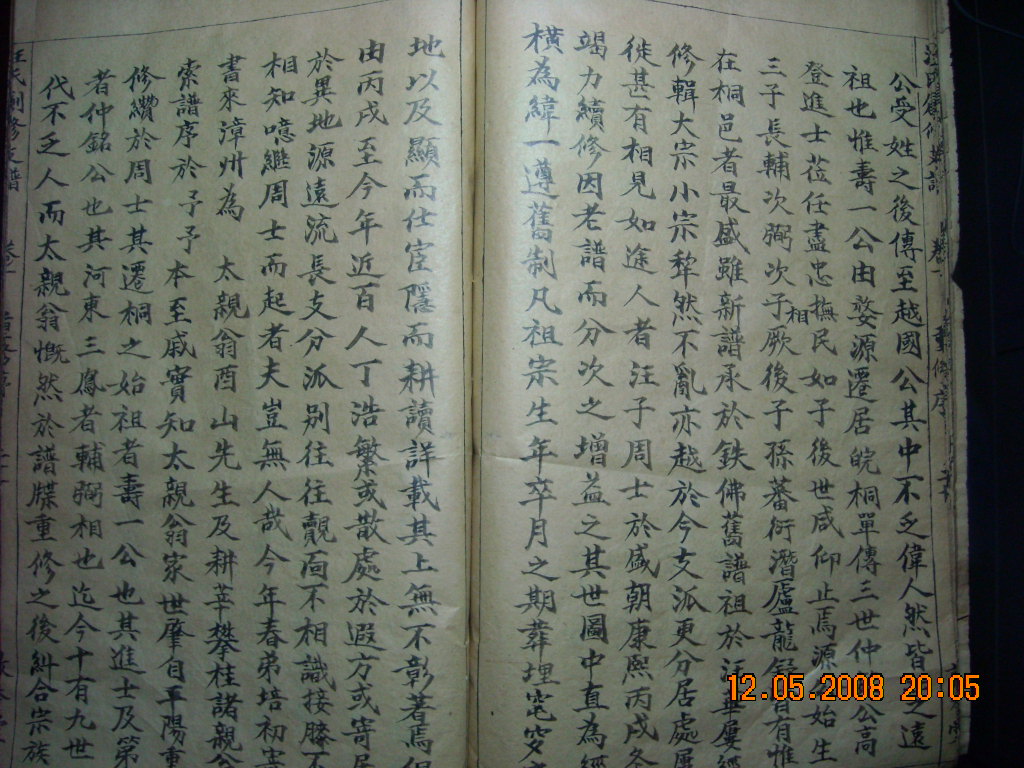 公受姓之後傳至越國公其中不乏偉人然皆
祖也惟壽一公由婺源遷居皖桐單傳三世仲
登進士莅任盡忠撫民如子後世咸仰止焉源公始生
三子長輔次弼次子相厥後子孫蕃衍潛廬龍舒皆有惟
在桐邑者最盛雖新譜承於鉄佛舊譜祖於
修輯大宗小宗犂然不亂亦越於今支派更分居處
徙甚有相見如途人者汪子周士於盛朝康熙丙戌
竭力續修因老譜而分次之增益之其世圖中直為經
橫為緯一遵舊制凡祖宗生年卒月之期葬埋
地以及顯而仕宦隱而耕讀詳載其上無不彰著焉
由丙戌至今年近百人丁浩繁或散處於遐方或寄居
於異地源遠流長支分派別往往覿面不相識接膝不
相知噫繼周士而起者夫豈無人哉今年春弟培初
書來漳州為太親翁酉山先生及耕莘攀桂諸親
索譜序於予予本至戚實知太親翁家世肇自平陽重
修纘於周士其遷桐之始祖者壽一公也其進士及第
者仲銘公也其河東三鳳者輔弼相也迄今十有九世
代不乏人而太親翁慨然於譜牒重修之後糾合宗族
12.05.2008 20:05